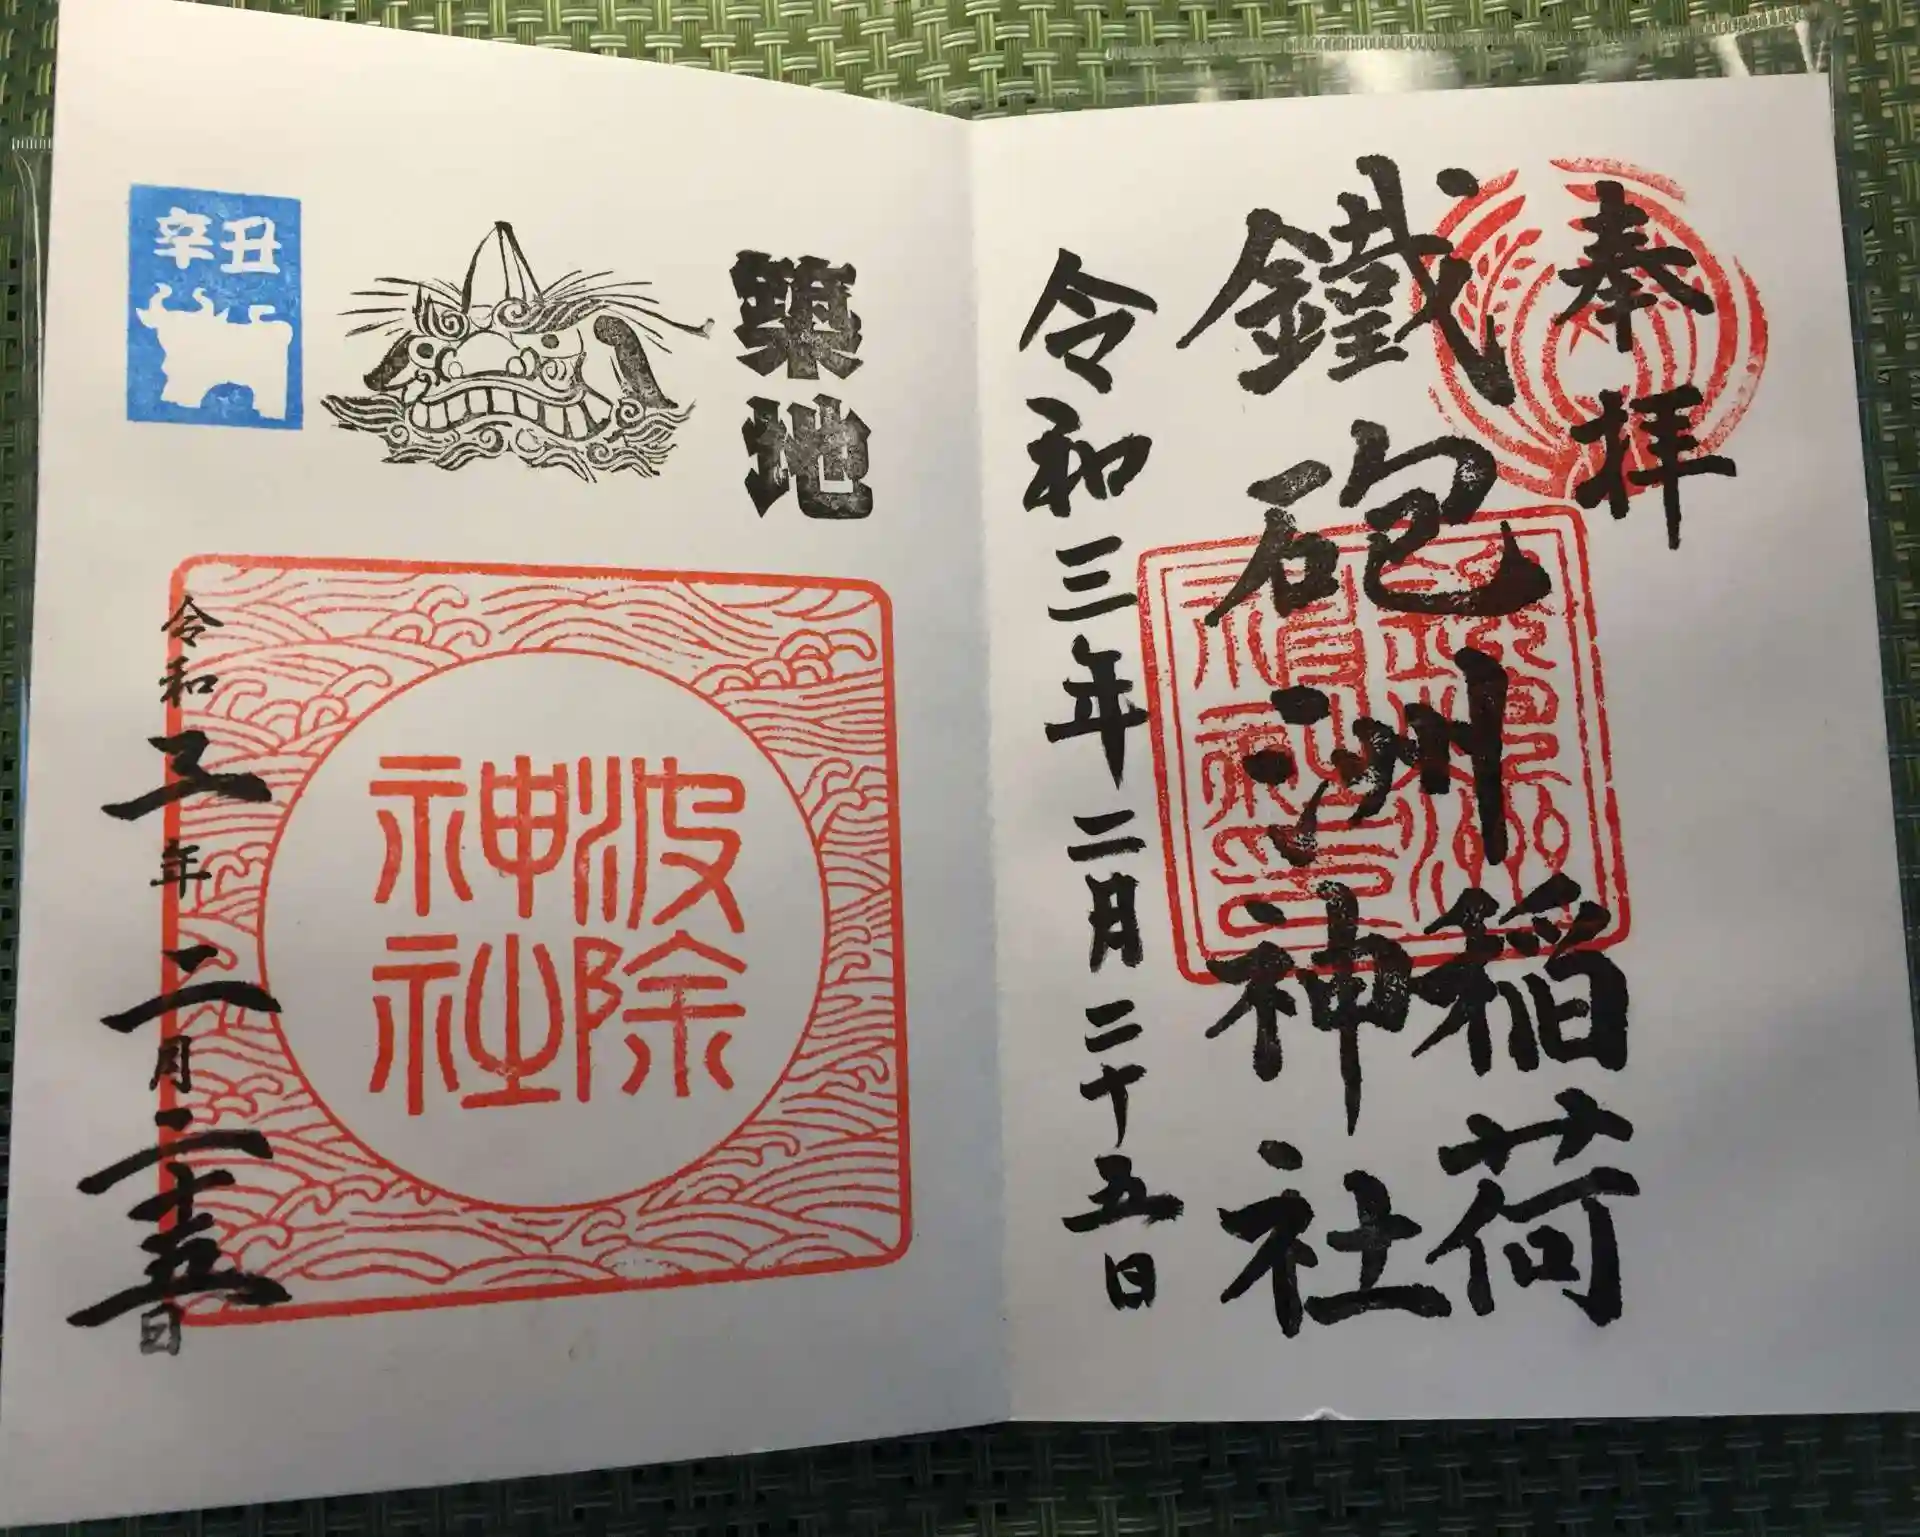 奉拝
鐵砲洲稲荷神社
令和三年二月二十五日
築地
辛丑
波除神社
令和三年二月二十五日